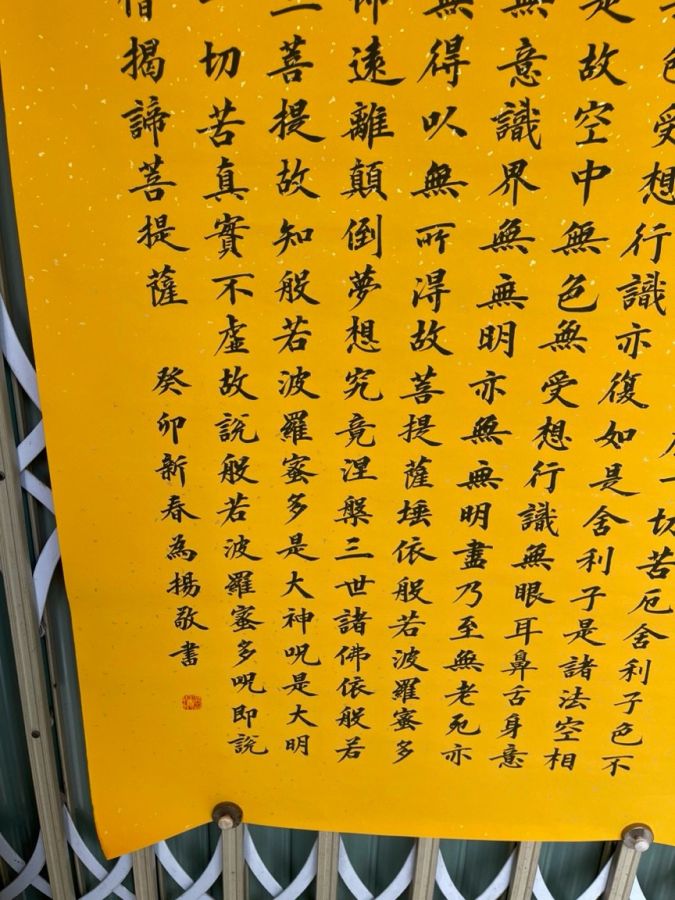 一切苦厄舍利子色不
色受想行識亦復如是舍利子是諸法空相
是故空中無色無受想行識無眼耳鼻舌身意
無意識界無無明亦無無明盡乃至無老死亦
無得以無所得故菩提薩埵依般若波羅蜜多
怖遠離顛倒夢想究竟涅槃三世諸佛依般若
三菩提故知般若波羅蜜多是大神呪是大明
一切苦真實不虛故說般若波羅蜜多呪即說
僧揭諦菩提薩
癸卯新春為揚敬書